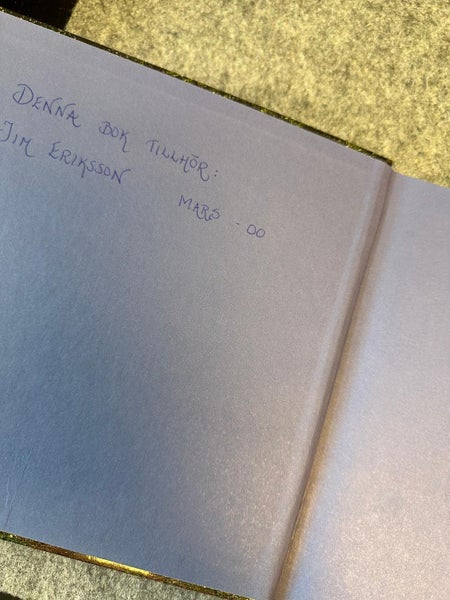 DENNA BOK TILLHÖR:
JIM ERIKSSON
MARS - 00